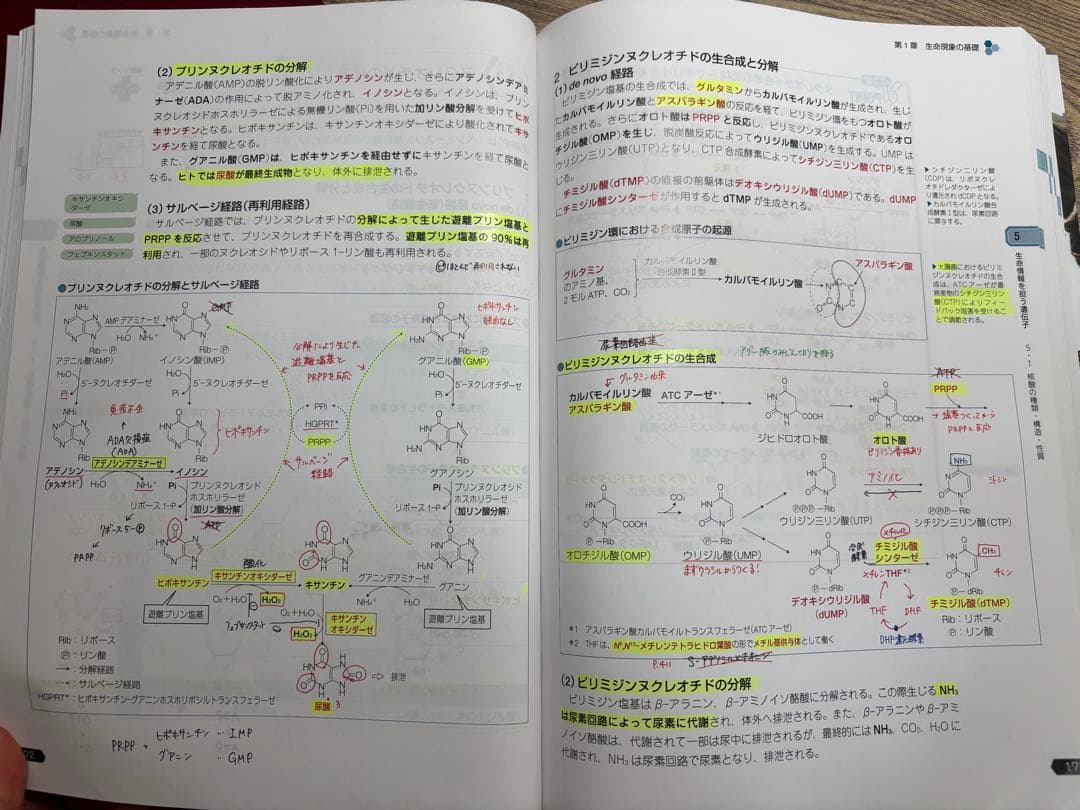 (2) プリンヌクレオチドの分解
アデニル酸(AMP)の脱リン酸化によりアデノシンが生じ、さらにアデノシンデアミ
ナーゼ(ADA)の作用によって脱アミノ化され、イノシンとなる。イノシンは、プリン
ヌクレオシドホスホリラーゼによる無機リン酸(Pi)を用いた加リン酸分解を受けてヒポ
キサンチンとなる。ヒポキサンチンは、キサンチンオキシダーゼにより酸化されてキサ
ンチンを経て尿酸となる。
また、グアニル酸(GMP)は、ヒポキサンチンを経由せずにキサンチンを経て尿酸と
なる。ヒトでは尿酸が最終生成物となり、体外に排泄される。
キサンチンオキシダーゼ
尿酸
アロプリノール
フェブキソスタット
(3) サルベージ経路(再利用経路)
サルベージ経路では、プリンヌクレオチドの分解によって生じた遊離プリン塩基と
PRPPを反応させて、プリンヌクレオチドを再合成する。遊離プリン塩基の90%は再
利用され、一部のヌクレオシドやリボース 1-リン酸も再利用される。
●プリンヌクレオチドの分解とサルベージ経路
NH₂
AMPデアミナーゼ
H₂O NH₄⁺
Rib-Ⓟ
アデニル酸(AMP)
Rib-Ⓟ
イノシン酸(IMP)
ヒポキサンチン
経由なし
H₂N
Rib-Ⓟ
グアニル酸(GMP)
分解により生じた
遊離塩基と
PRPPを反応
5'-ヌクレオチダーゼ
Pi
5'-ヌクレオチダーゼ
Pi
5'-ヌクレオチダーゼ
Pi
PPi
HGPRT*
PRPP
免疫不全
ADA欠損症
(ADA)
ヒポキサンチン
サルベージ
経路
アデノシンデアミナーゼ
アデノシン
(ヌクレオシド)
H₂O NH₄⁺
イノシン
グアノシン
Pi
プリンヌクレオシド
ホスホリラーゼ
(加リン酸分解)
リボース 1-P
Pi
プリンヌクレオシド
ホスホリラーゼ
(加リン酸分解)
リボース 1-P
リボース5-Ⓟ
PRPP
酸化
ヒポキサンチン
キサンチンオキシダーゼ
キサンチン
グアニンデアミナーゼ
グアニン
O₂+H₂O
H₂O₂
NH₄⁺ H₂O
遊離プリン塩基
遊離プリン塩基
フェブキソスタット
O₂+H₂O
H₂O₂
キサンチン
オキシダーゼ
Rib：リボース
Ⓟ：リン酸
→：分解経路
→：サルベージ経路
尿酸
排泄
HGPRT*：ヒポキサンチン-グアニンホスホリボシルトランスフェラーゼ
PRPP + ヒポキサンチン … IMP
グアニン … GMP
第1章 生命現象の基礎
2 ピリミジンヌクレオチドの生合成と分解
(1) de novo 経路
ピリミジン塩基の生合成では、グルタミンからカルバモイルリン酸が生成され、生じ
たカルバモイルリン酸とアスパラギン酸の反応を経て、ピリミジン環をもつオロト酸が
生成される。さらにオロト酸はPRPPと反応し、ピリミジンヌクレオチドであるオロ
チジル酸(OMP)を生じ、脱炭酸反応によってウリジル酸(UMP)を生成する。UMPは
ウリジン三リン酸(UTP)となり、CTP合成酵素によってシチジン三リン酸(CTP)を生
じる。
チミジル酸(dTMP)の直接の前駆体はデオキシウリジル酸(dUMP)である。dUMP
にチミジル酸シンターゼが作用すると dTMP が生成される。
▶シチジン二リン酸
(CDP)は、リボヌクレ
オチドレダクターゼによ
り還元され dCDP となる。
▶カルバモイルリン酸合
成酵素Ⅰ型は、尿素回路
に関与する。
●ピリミジン環における合成原子の起源
グルタミン
のアミノ基、
2モルATP、CO₂
カルバモイルリン酸
合成酵素Ⅱ型
カルバモイルリン酸
アスパラギン酸
▶大腸菌におけるピリミ
ジンヌクレオチドの生合
成は、ATCアーゼが最
終産物のシチジン三リン
酸(CTP)によりフィー
ドバック阻害を受けるこ
とで調節される。
5
生命情報を担う遺伝子
5・1 核酸の種類・構造・性質
●ピリミジンヌクレオチドの生合成
グルタミン由来
カルバモイルリン酸
アスパラギン酸
ATCアーゼ*¹
COOH
ジヒドロオロト酸
COOH
オロト酸
ピリミジン骨格あり
PRPP
塩基つくってから
PRPPと反応
COOH
Ⓟ-Rib
オロチジル酸(OMP)
CO₂
Ⓟ-Rib
ウリジル酸(UMP)
まずウラシルからつくる!
ⓅⓅⓅ-Rib
ウリジン三リン酸(UTP)
アミノ化
NH₂
ⓅⓅⓅ-Rib
シチジン三リン酸(CTP)
シトシン
Ⓟ-dRib
デオキシウリジル酸
(dUMP)
メチル化
チミジル酸
シンターゼ
メチレンTHF*²
THF DHF
DHF還元酵素
CH₃
チミン
Ⓟ-dRib
チミジル酸(dTMP)
Rib：リボース
Ⓟ：リン酸
*1 アスパラギン酸カルバモイルトランスフェラーゼ(ATCアーゼ)
*2 THFは、N⁵,N¹⁰-メチレンテトラヒドロ葉酸の形でメチル基供与体として働く
P.411
(2) ピリミジンヌクレオチドの分解
ピリミジン塩基は β-アラニン、β-アミノイソ酪酸に分解される。この際生じる NH₃
は尿素回路によって尿素に代謝され、体外へ排泄される。また、β-アラニンや β-アミ
ノイソ酪酸は、代謝されて一部は尿中に排泄されるが、最終的には NH₃、CO₂、H₂O に
代謝され、NH₃ は尿素回路で尿素となり、排泄される。